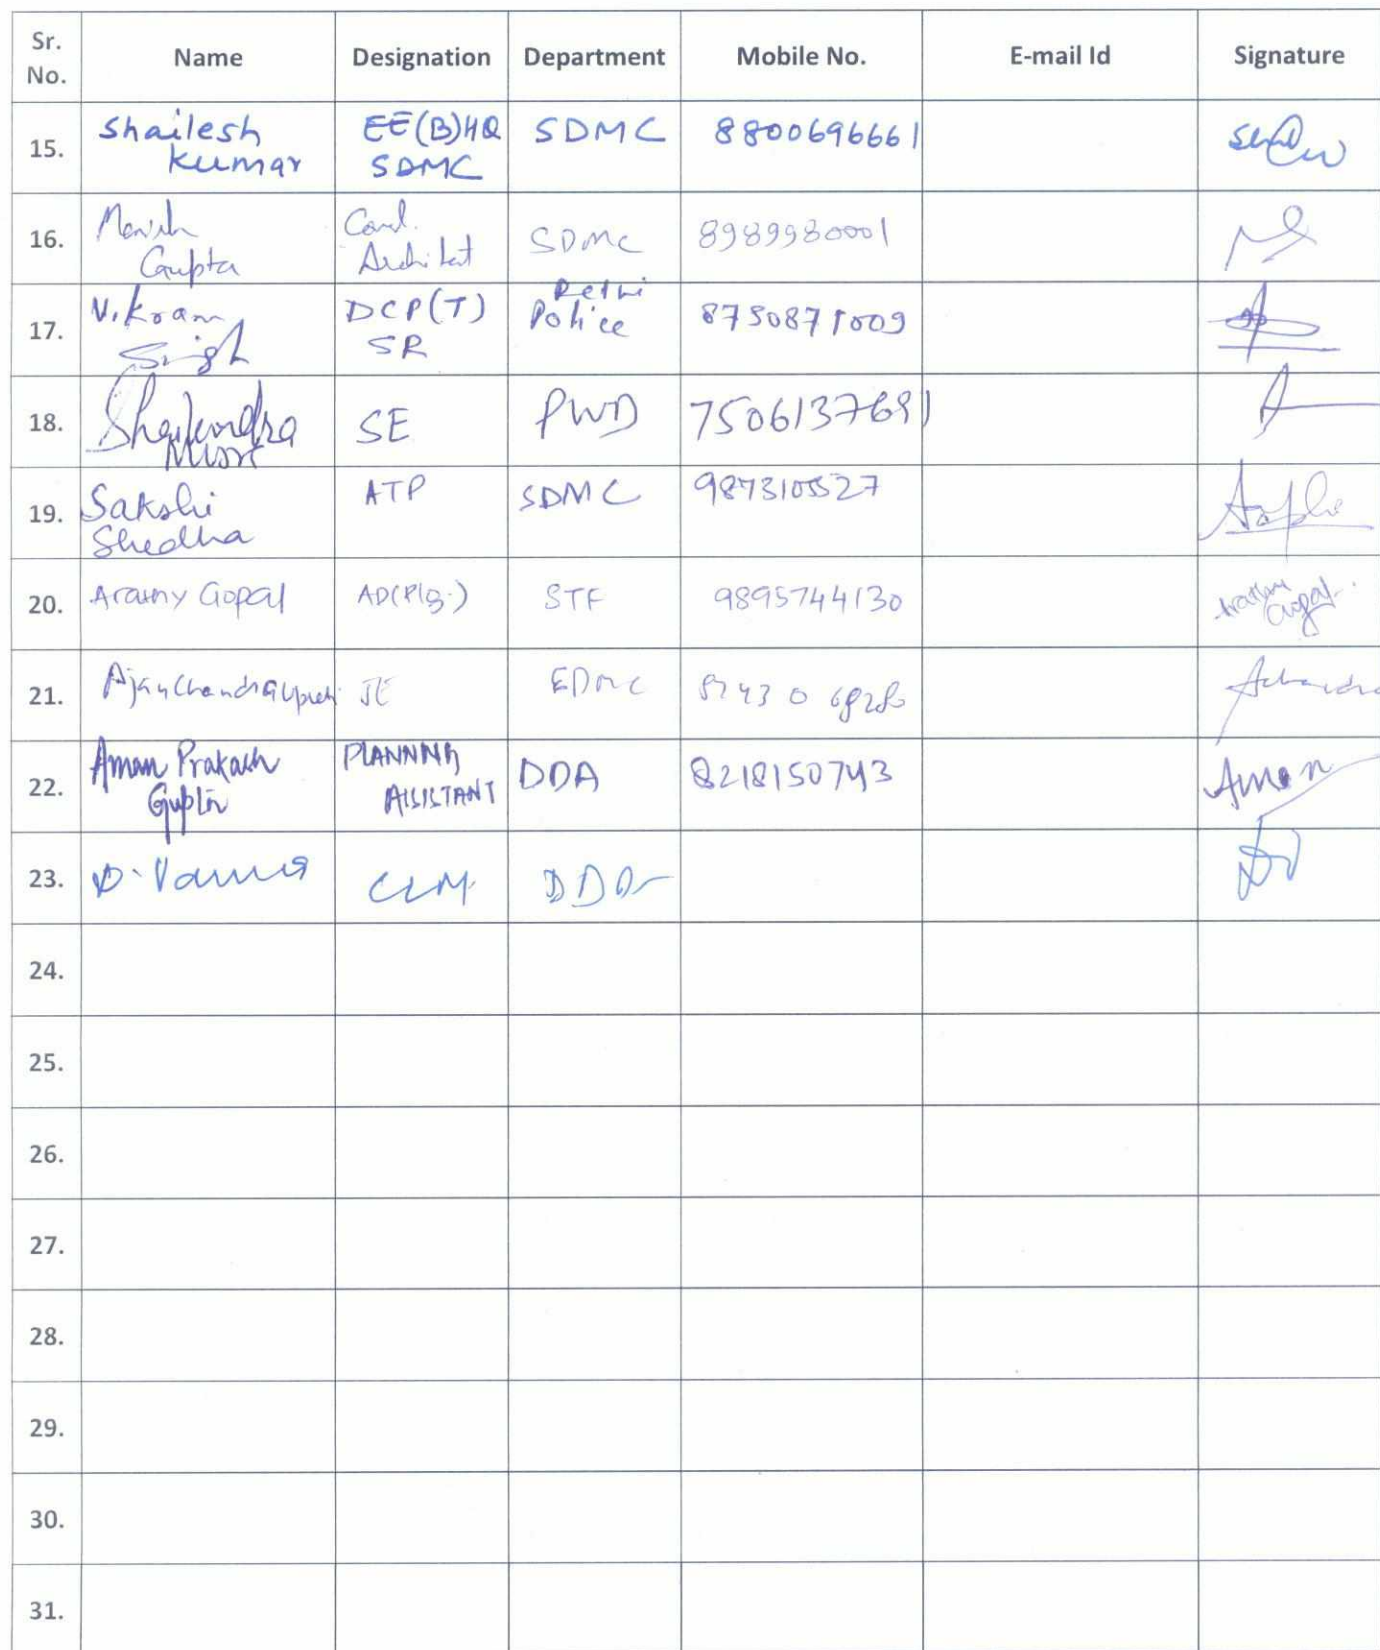 Sr. No. Name Designation Department Mobile No. E-mail Id Signature
15. Shailesh Kumar EE(B)HQ SDMC SDMC 8800696661
16. Manish Gupta Architect SDMC 8989980001
17. Vikram Singh DCP(T) SR Delhi Police 8750871009
18. Shailendra SE PWD 7506137691
19. Sakshi ATP SDMC
20. Gopal AD(Plg.) STF 9895744130 Gopal
21. JE EDMC
22. Aman Prakash Gupta PLANNING ASSISTANT DDA 8218150743 Aman
23. DDA
24.
25.
26.
27.
28.
29.
30.
31.